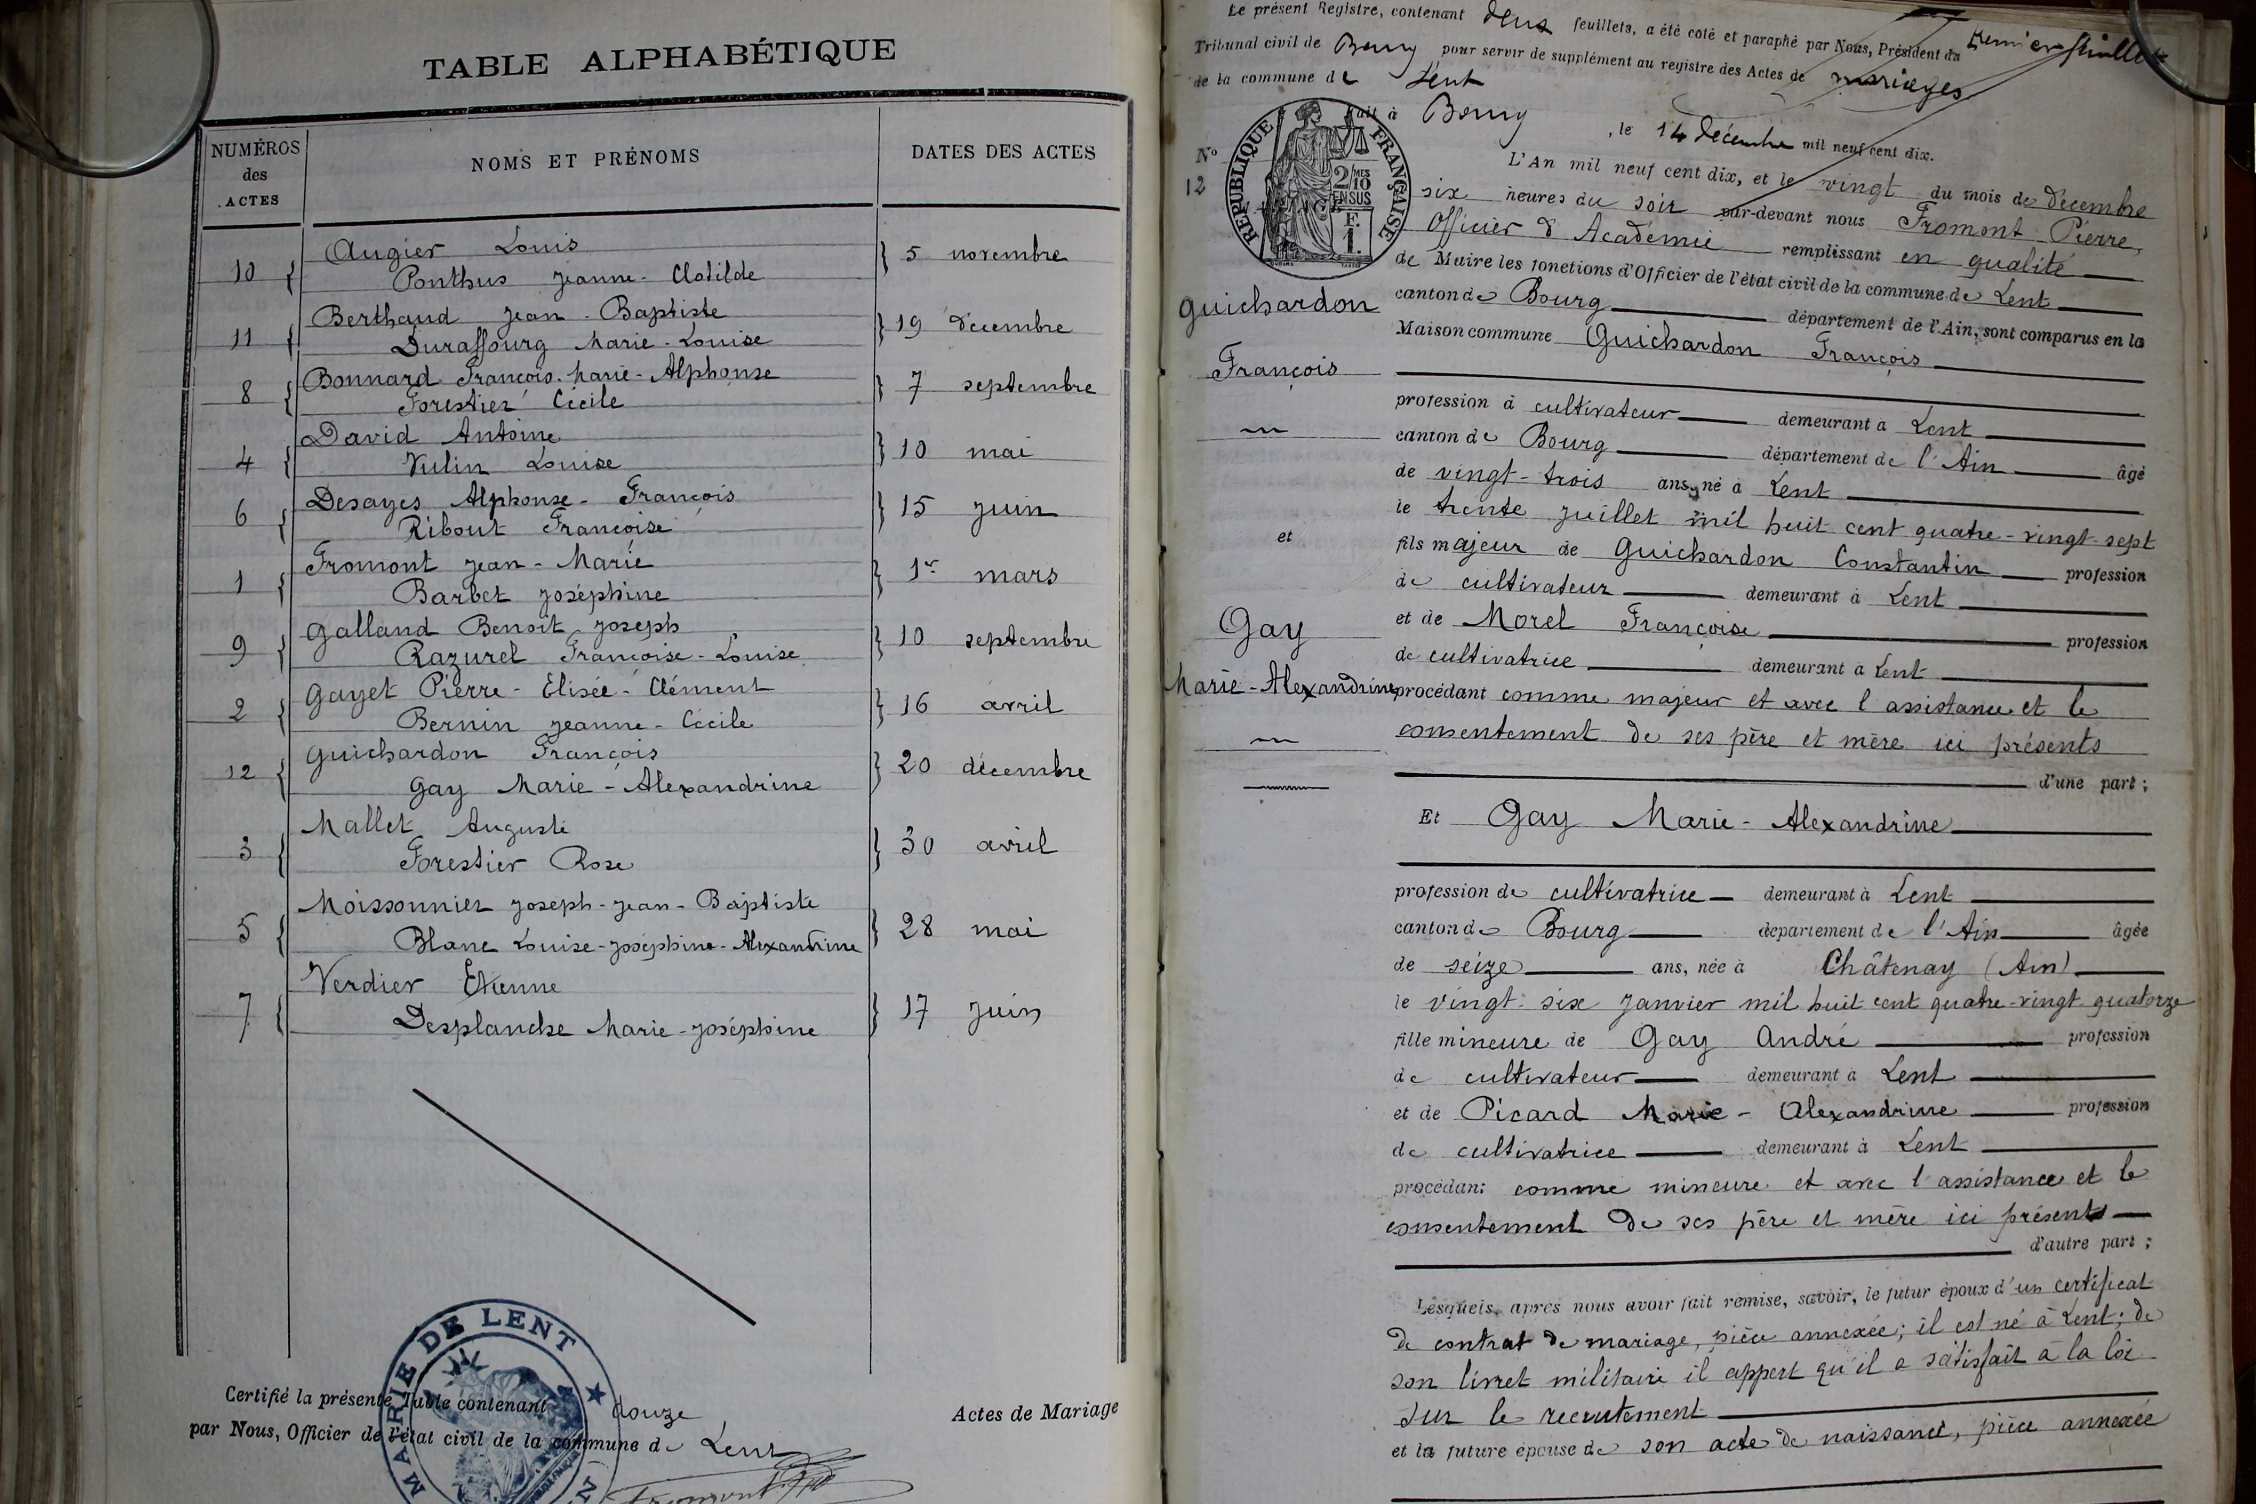 TABLE ALPHABÉTIQUE
NUMÉROS
des
ACTES
NOMS ET PRÉNOMS
DATES DES ACTES
Augier Louis
10 { Ponthus Jeanne-Clotilde } 5 novembre
Berthaud Jean-Baptiste
11 { Duraffourg Marie-Louise } 19 décembre
Bonnard François-Marie-Alphonse
8 { Forestier Cécile } 7 septembre
David Antoine
4 { Vulin Louise } 10 mai
Desayes Alphonse-François
6 { Ribout Françoise } 15 juin
Fromont Jean-Marie
1 { Barbet Joséphine } 1er mars
Galland Benoît Joseph
9 { Razurel Françoise-Louise } 10 septembre
Gayet Pierre-Elisée-Clément
2 { Bernin Jeanne-Cécile } 16 avril
Guichardon François
12 { Gay Marie-Alexandrine } 20 décembre
Mallet Auguste
3 { Forestier Rose } 30 avril
Moissonnier Joseph-Jean-Baptiste
5 { Blanc Louise-Joséphine-Alexandrine } 28 mai
Verdier Etienne
7 { Desplanche Marie-Joséphine } 17 juin
MAIRIE DE LENT
Certifié la présente Table contenant douze Actes de Mariage
par Nous, Officier de l'état civil de la commune de Lent
Fromont
Le présent Registre, contenant deux feuillets, a été coté et paraphé par Nous, Président du
Tribunal civil de Bourg pour servir de supplément au registre des Actes de mariages
de la commune de Lent
Fait à Bourg, le 14 décembre mil neuf cent dix.
Dernier feuillet
RÉPUBLIQUE FRANÇAISE
2/10 MES
EN SUS
F.
1.
No
12
Guichardon
François
et
Gay
Marie-Alexandrine
L'An mil neuf cent dix, et le vingt du mois de décembre
six heures du soir par-devant nous Fromont Pierre,
Officier d'Académie remplissant en qualité
de Maire les fonctions d'Officier de l'état civil de la commune de Lent
canton de Bourg département de l'Ain, sont comparus en la
Maison commune Guichardon François
profession de cultivateur demeurant à Lent
canton de Bourg département de l'Ain âgé
de vingt-trois ans, né à Lent
le trente juillet mil huit cent quatre-vingt-sept
fils majeur de Guichardon Constantin profession
de cultivateur demeurant à Lent
et de Morel Françoise profession
de cultivatrice demeurant à Lent
procédant comme majeur et avec l'assistance et le
consentement de ses père et mère ici présents
d'une part ;
Et Gay Marie-Alexandrine
profession de cultivatrice demeurant à Lent
canton de Bourg département de l'Ain âgée
de seize ans, née à Châtenay (Ain)
le vingt-six janvier mil huit cent quatre-vingt quatorze
fille mineure de Gay André profession
de cultivateur demeurant à Lent
et de Picard Marie-Alexandrine profession
de cultivatrice demeurant à Lent
procédant comme mineure et avec l'assistance et le
consentement de ses père et mère ici présents
d'autre part ;
Lesquels, après nous avoir fait remise, savoir, le futur époux d'un certificat
de contrat de mariage, pièce annexée; il est né à Lent; de
son livret militaire il appert qu'il a satisfait à la loi
sur le recrutement
et la future épouse de son acte de naissance, pièce annexée